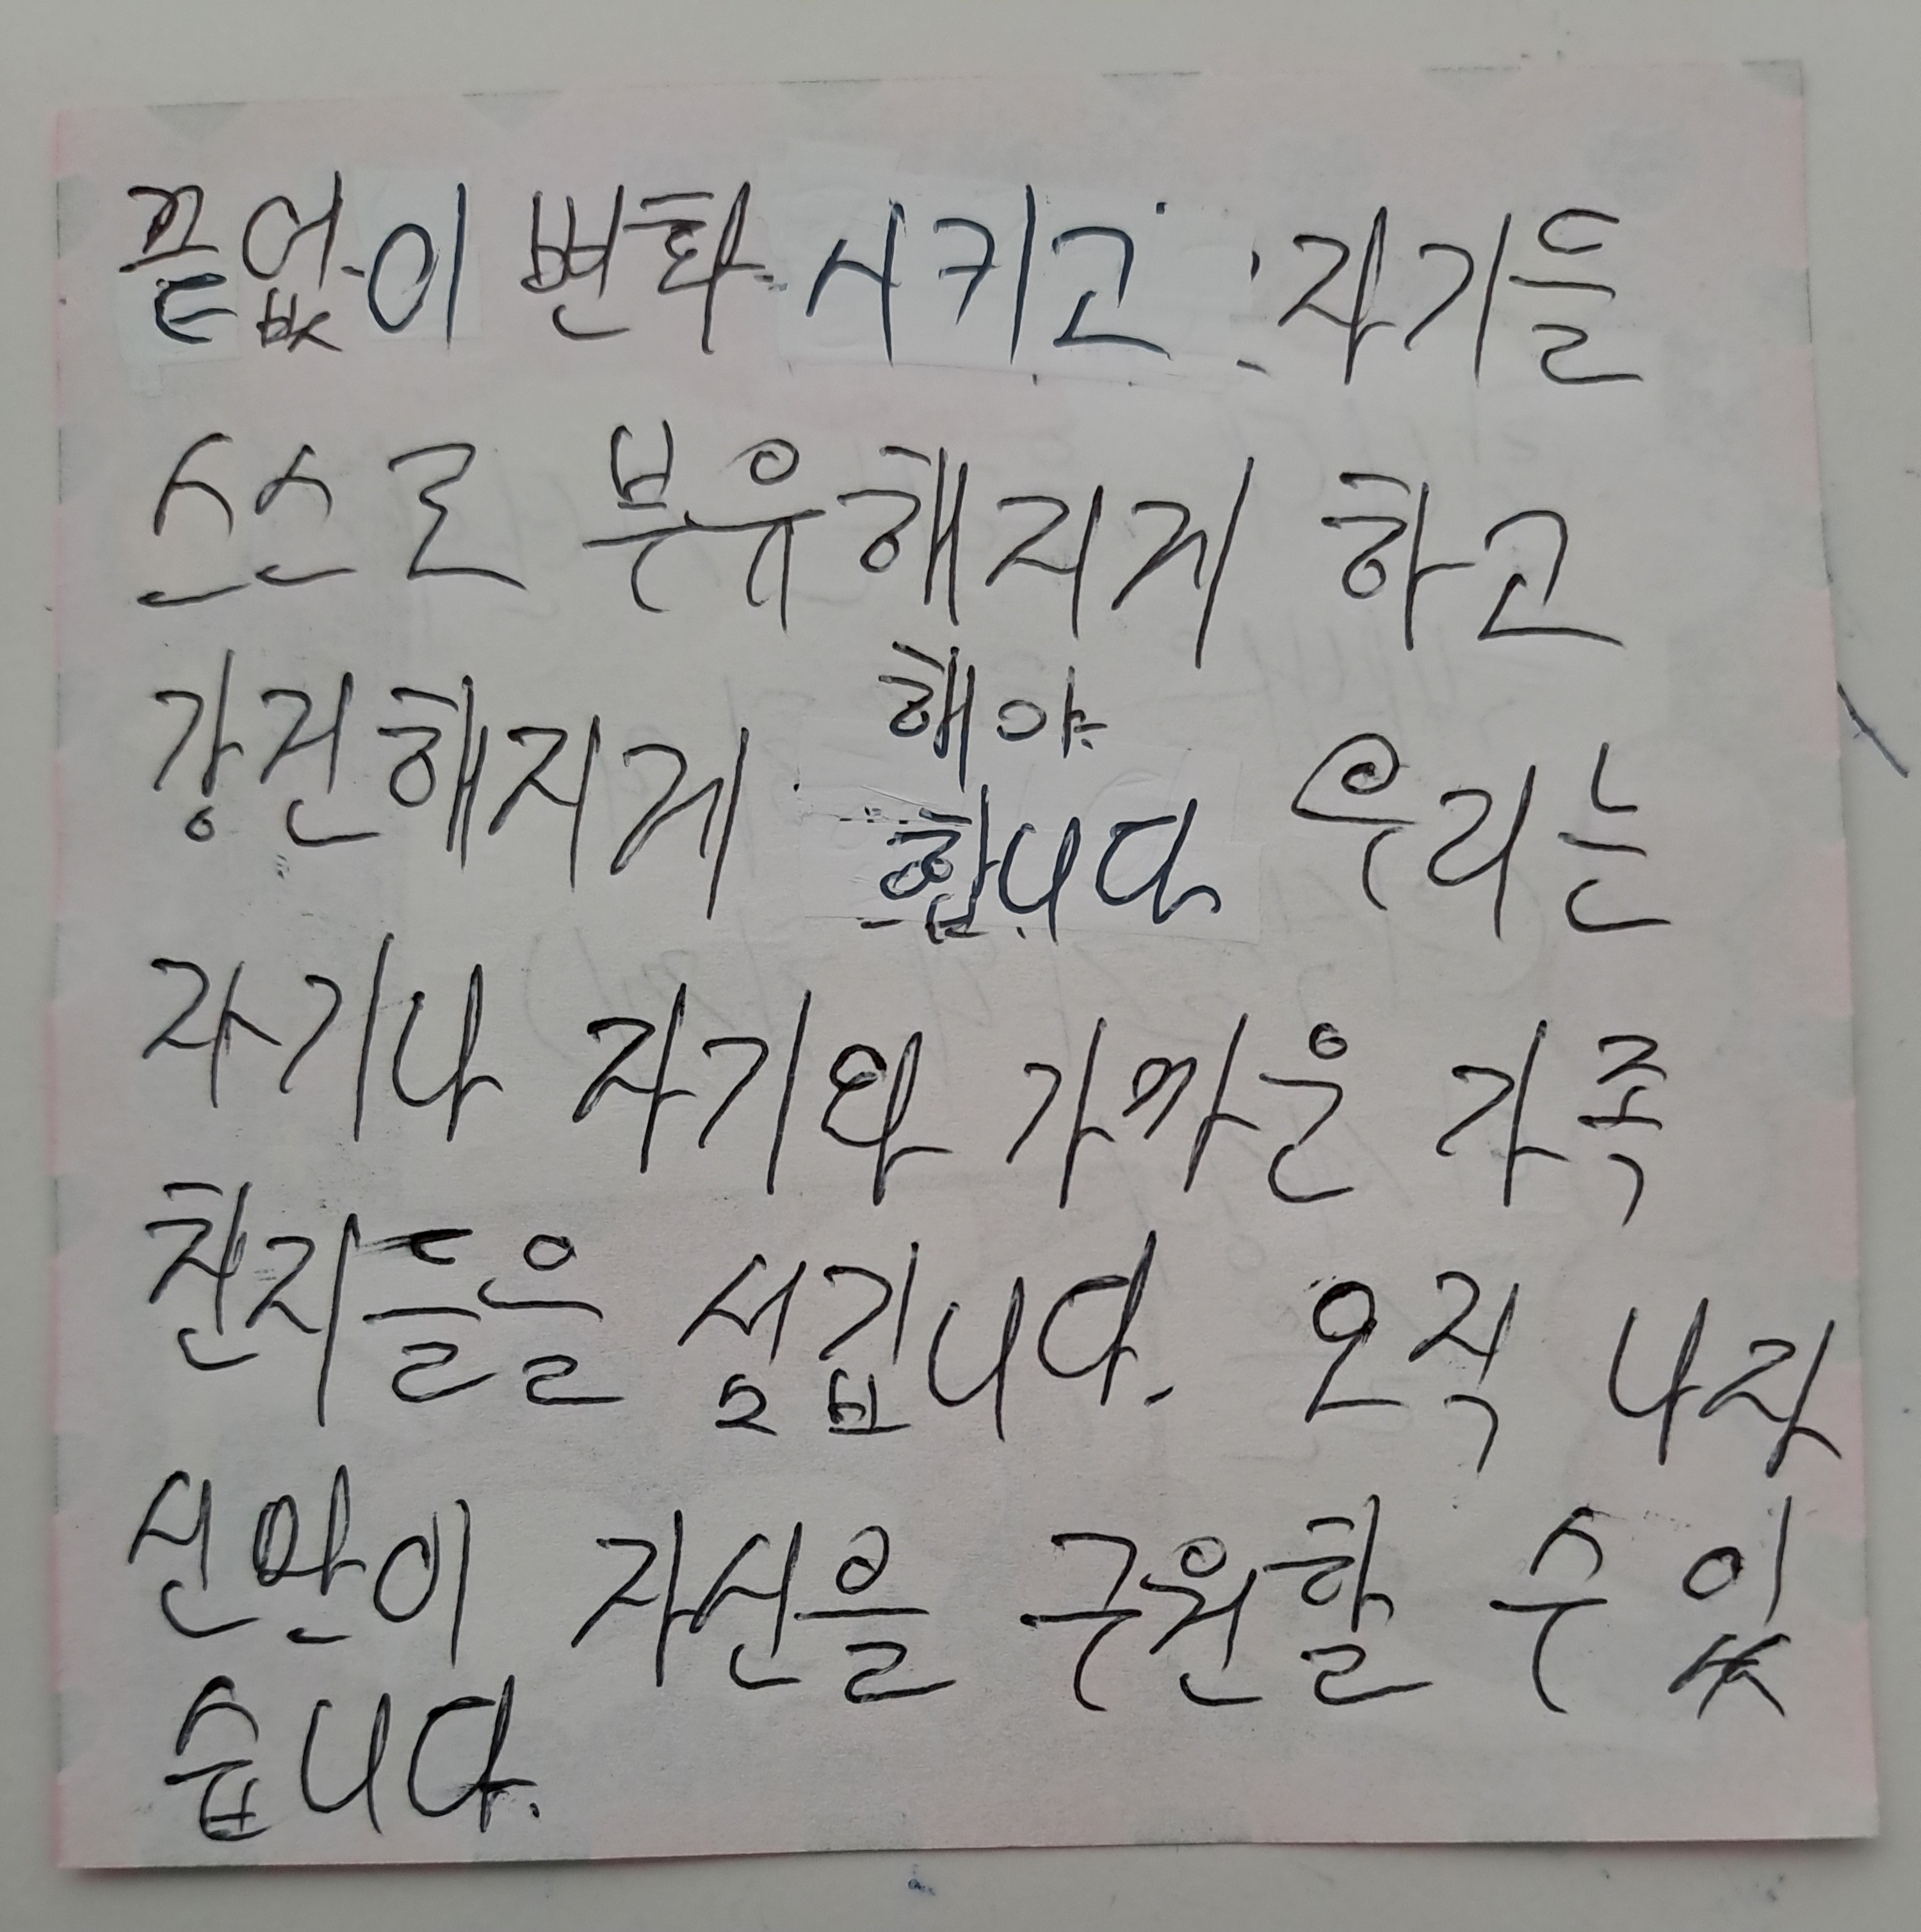 끝없이 변화 시키고 자기들
스스로 부유해지게 하고
강건해지게 해야
합니다 우리는
자기나 자기와 가까운 가족
친지들을 섬깁니다. 오직 나자
신만이 자신을 구원할 수 있
습니다.